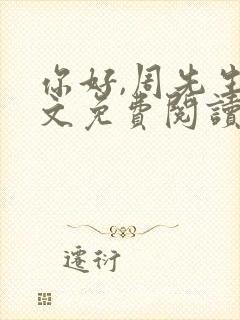 你好,周先生
文免費閱讀
遷衍